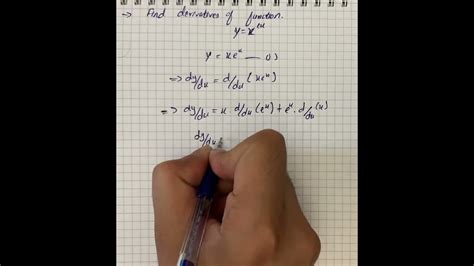 → Find derivatives of function.
y = x^{ex}
y = xe^x — (1)
⇒ dy/dx = d/dx (xe^x)
⇒ dy/dx = x · d/dx (e^x) + e^x · d/dx (x)
dy/dx